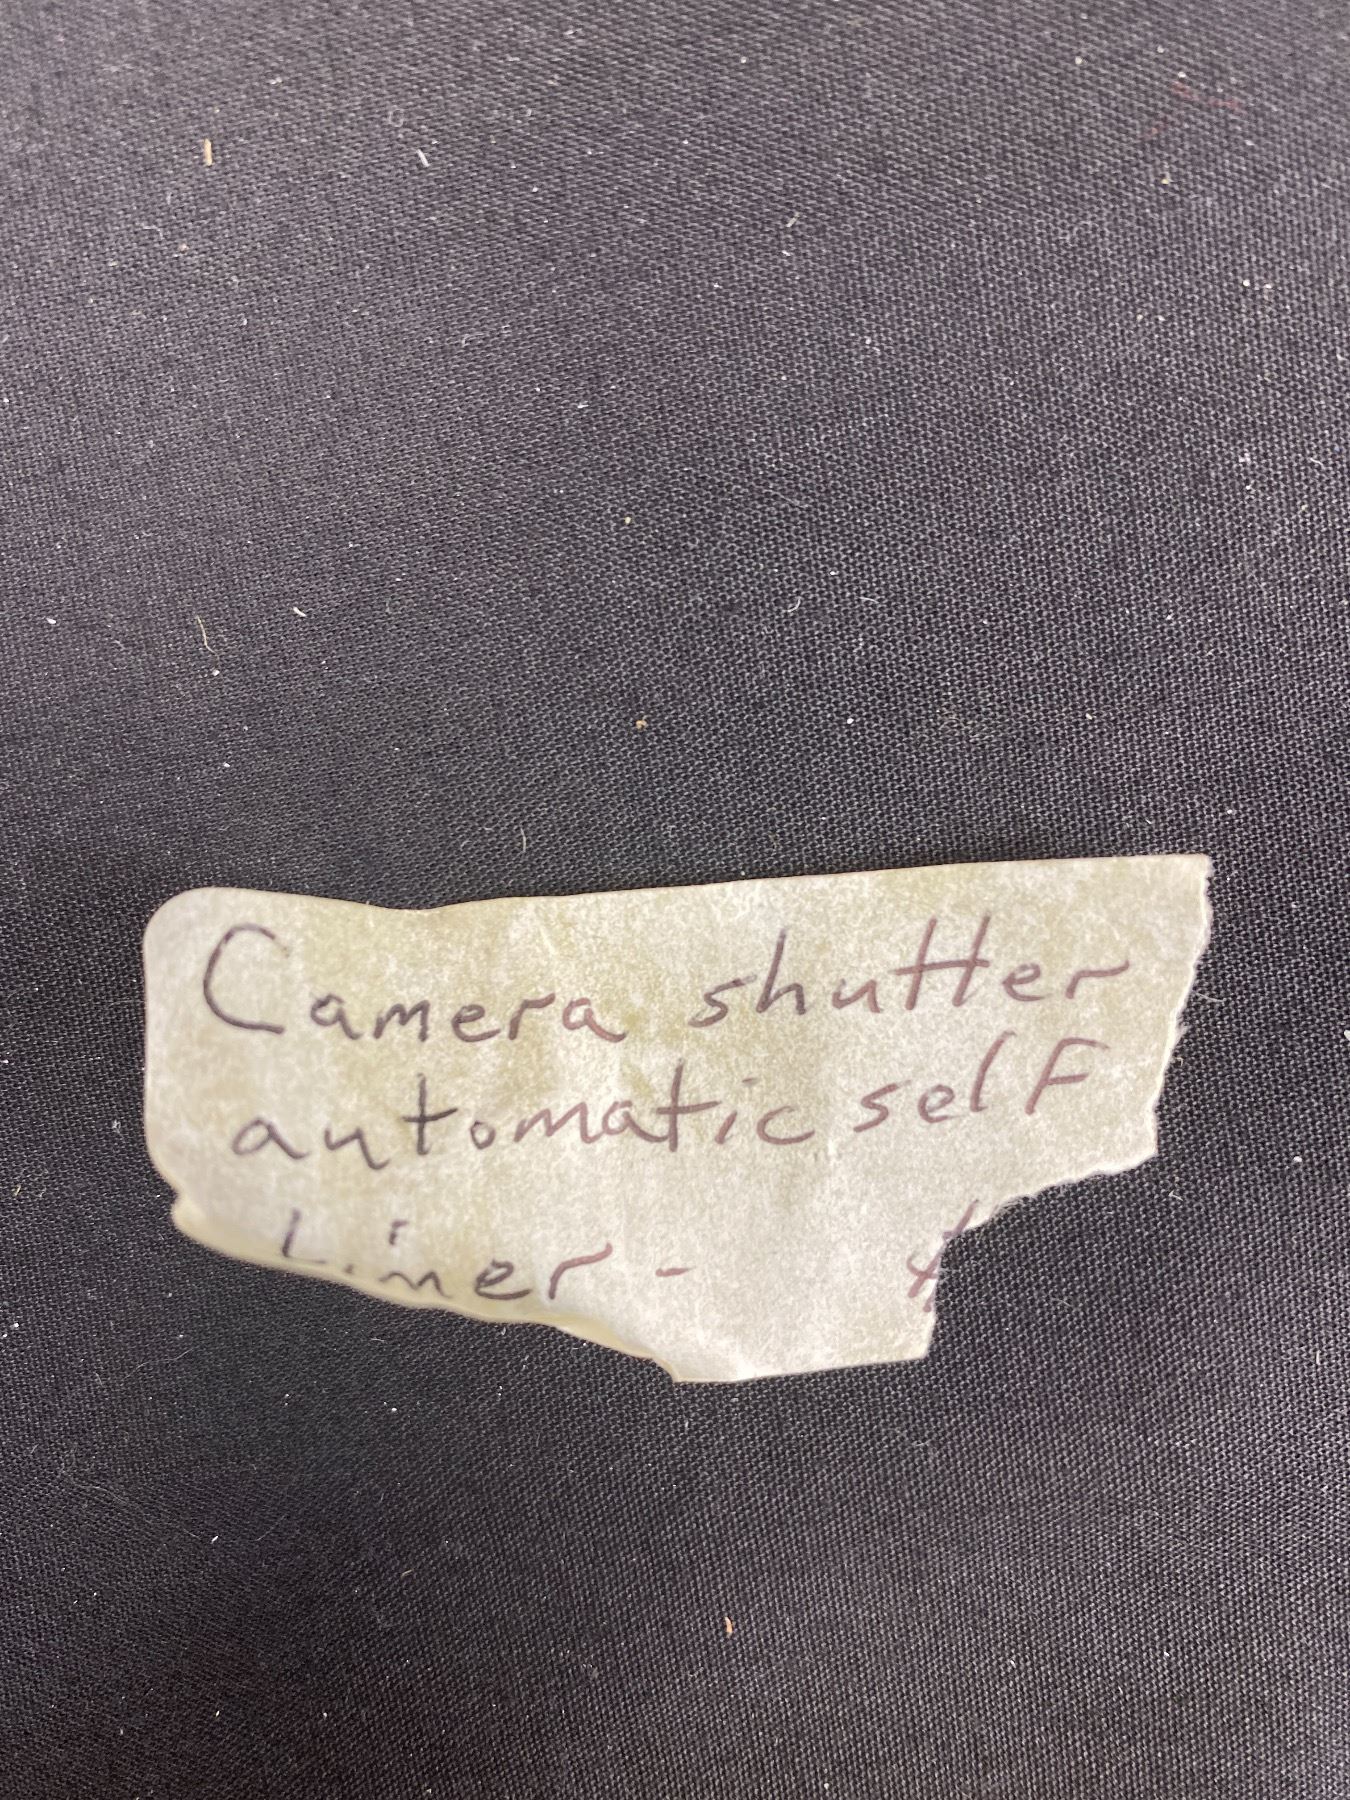 Camera shutter
automatic self
timer - $